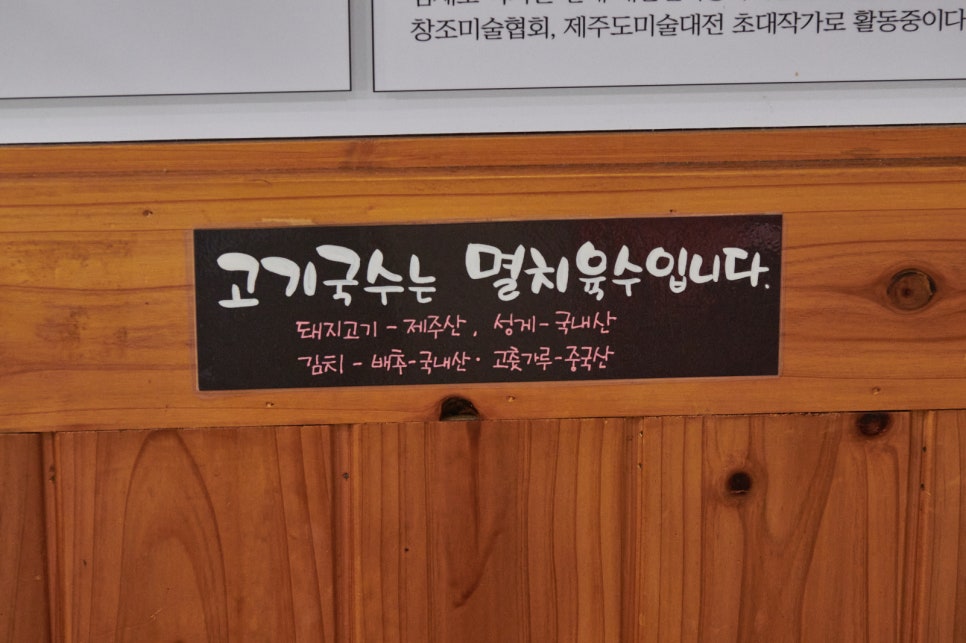 창조미술협회, 제주도미술대전 초대작가로 활동중이다
고기국수는 멸치육수입니다.
돼지고기 - 제주산, 성게 - 국내산
김치 - 배추-국내산· 고춧가루-중국산